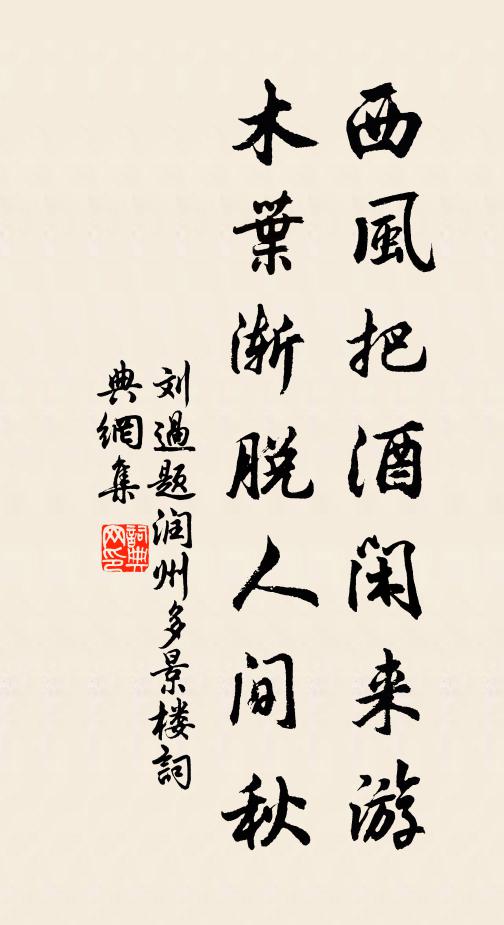 西風把酒閑来游
木葉漸脱人间秋
刘過题润州多景楼詞
典網集
詞典
网印